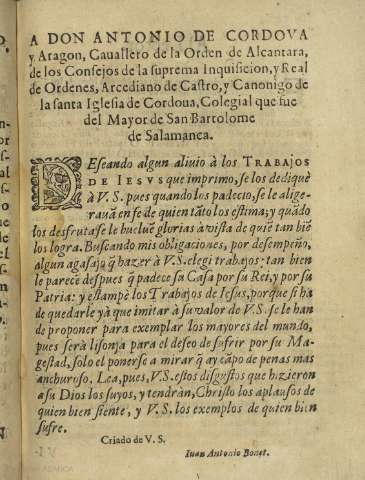 A DON ANTONIO DE CORDOVA
y Aragon, Cauallero de la Orden de Alcantara,
de los Consejos de la suprema Inquisicion, y Real
de Ordenes, Arcediano de Castro, y Canonigo de
la santa Iglesia de Cordoua, Colegial que fue
del Mayor de San Bartolome
de Salamanca.
DEseando algun aliuio à los TRABAJOS
DE IESVS que imprimo, se los dediquè
à V.S. pues quando los padecio, se le alige-
rauã en fe de quien tãto los estima; y quãdo
los desfruta se le bueluẽ glorias à vista de quiẽ tan biẽ
los logra. Buscando mis obligaciones, por desempeño,
algun agasajo q̃ hazer à V.S. elegi trabajos: tan bien
le parecẽ despues q̃ padece su Casa por su Rei, y por su
Patria: y estampè los Trabajos de Iesus, porque si ha
de quedarle yà que imitar à su valor de V.S. se le han
de proponer para exemplar los mayores del mundo,
pues serà lisonja para el deseo de sufrir por su Ma-
gestad, solo el ponerse a mirar q̃ ay cãpo de penas mas
anchuroso. Lea, pues, V.S. estos disgustos que hizieron
a su Dios los suyos, y tendràn, Christo los aplausos de
quien bien siente, y V.S. los exemplos de quien bien
sufre.
Criado de V.S.
Iuan Antonio Bonet.